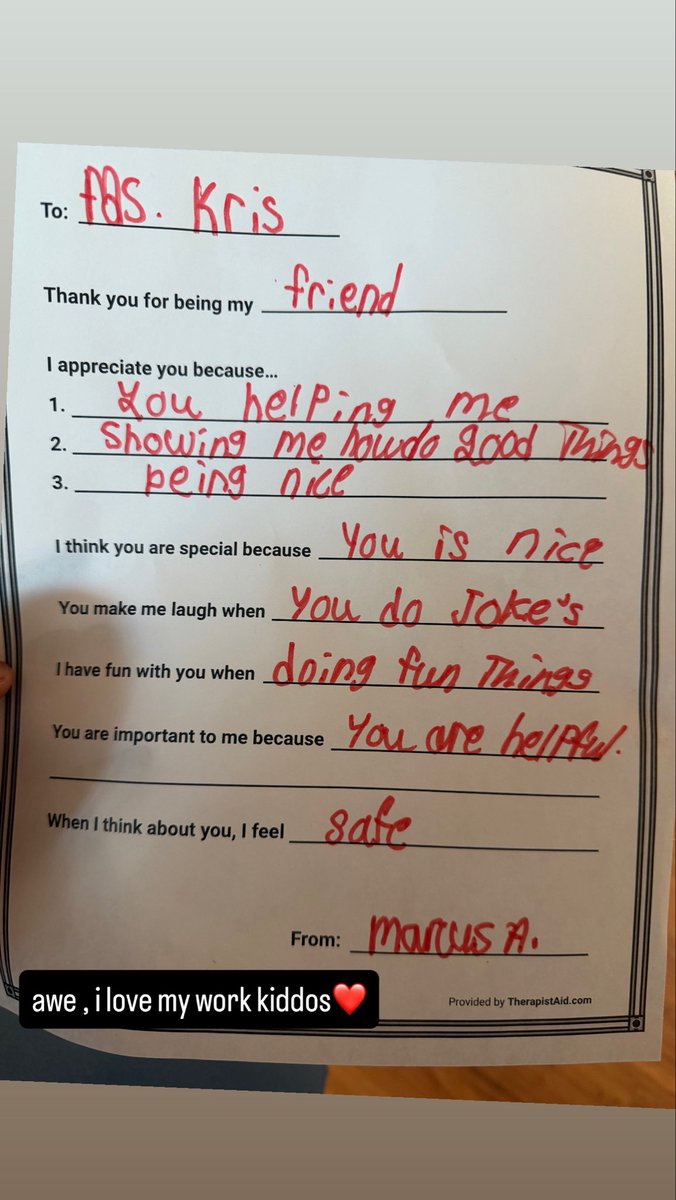 To: Ms. Kris
Thank you for being my friend
I appreciate you because...
1. You helping me
2. Showing me howdo good Things
3. being nice
I think you are special because You is nice
You make me laugh when you do Joke's
I have fun with you when doing fun Things
You are important to me because You are helpful.
When I think about you, I feel safe
From: Marcus A.
awe , i love my work kiddos❤️
Provided by TherapistAid.com